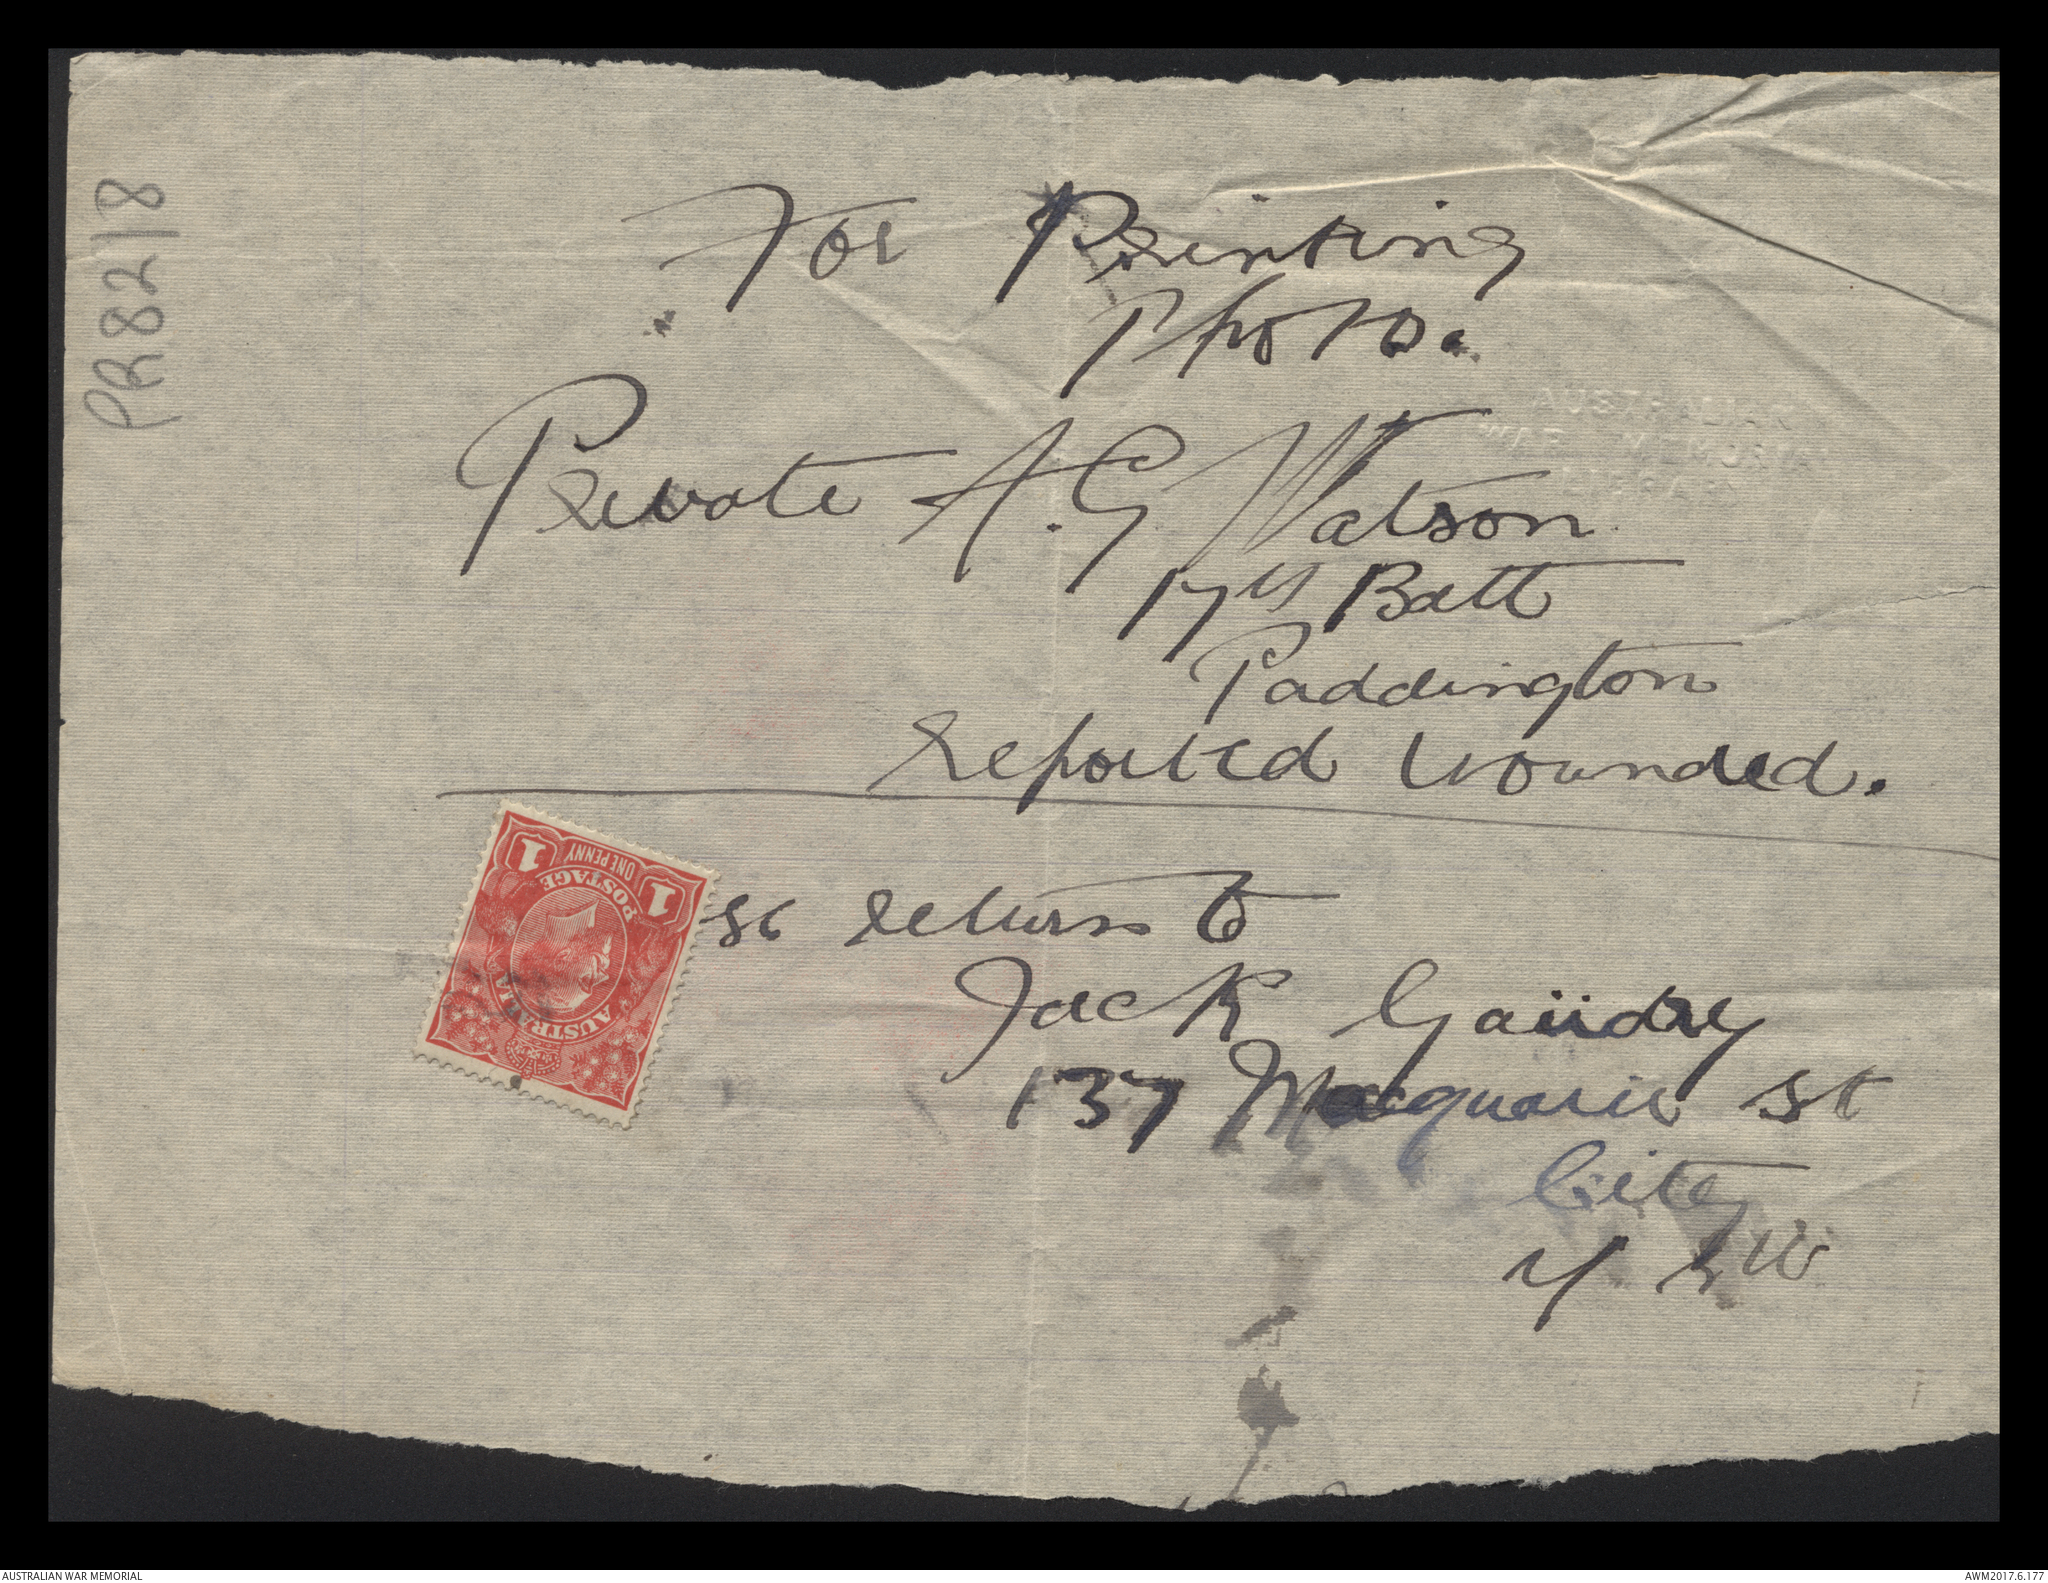 PR82/18
For Printing
Photo.
Private A.G Watson
17th Batt
Paddington
reported wounded.
return to
Jack Gaudry
137 Macquarie St
City
N S W
AUSTRALIAN
WAR MEMORIAL
LIBRARY
1 ONE PENNY 1
POSTAGE
AUSTRALIA
AUSTRALIAN WAR MEMORIAL
AWM2017.6.177